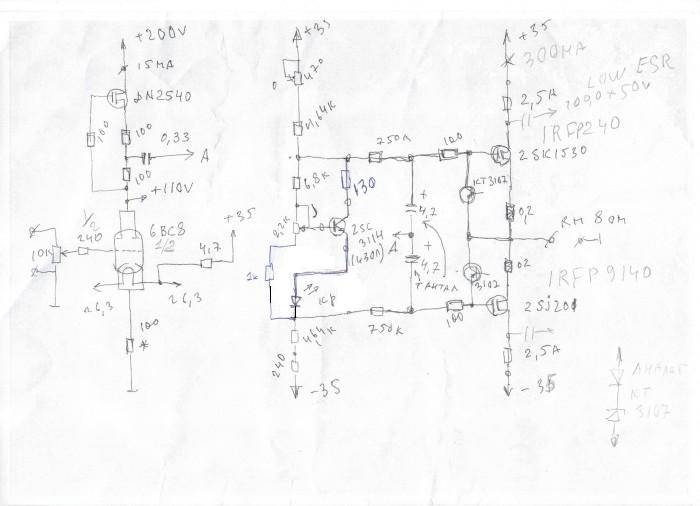 +200V
15МА
DN2540
100
100
0,33
A
100
+110V
1/2
240
6BC8
1/2
10K
+35
4,7
~6,3
~6,3
100
*
+35
470
4,64K
6,8K
130
750Л
100
2,2K
2SC
3114
(430Л)
1K
кр
4,64K
240
-35
+
4,2
A
+
4,2
ТАНТАЛ
750K
100
КТ3107
3107
+35
300МА
2,5A
LOW ESR
1000×50V
IRFP240
2SK1530
0,2
RH 8 ОМ
0,2
IRFP9140
2SJ201
2,5A
-35
АНАЛОГ
КТ
3107